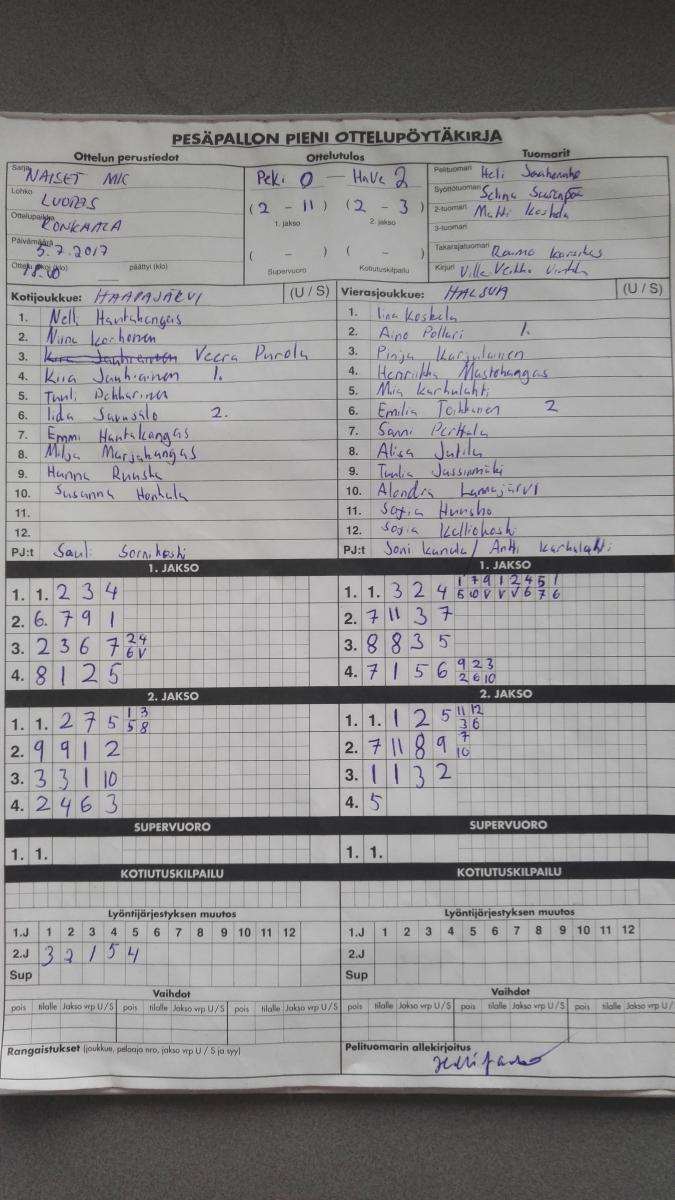 PESÄPALLON PIENI OTTELUPÖYTÄKIRJA
Ottelun perustiedot
Ottelutulos
Tuomarit
Sarja NAISET
Lohko
Ottelupaikka
Päivämäärä 5.7.2017
päättyi (klo)
PeKi 0 – HaVe 2
(2 – 11) (2 – 3)
1. jakso 2. jakso
( – ) ( – )
Supervuoro Kotiutuskilpailu
Pelituomari Heli
Syöttötuomari Selina
2-tuomari Matti
3-tuomari
Takarajatuomari Raimo
Kirjuri Ville Veikko
Kotijoukkue: HAAPAJÄRVI (U / S)
1. Nelli Hautakangas
2. Niina Korhonen
3. Veera Purola
4. Kiia Jauhiainen 1.
5. Tuuli
6. Iida Savusalo 2.
7. Emmi Hautakangas
8. Milja Marjakangas
9. Hanna Ruuska
10. Susanna Honkala
11.
12.
PJ:t Sauli Sornikoski
Vierasjoukkue: HALSUA (U / S)
1. Iina Koskela
2. Aino Pollari 1.
3. Pinja Karjalainen
4. Henriikka Mastokangas
5. Mia Karhulahti
6. Emilia Toikkanen 2
7. Sanni Perttula
8. Alisa Jutila
9. Tuulia Jussinmäki
10. Alondra Lamajärvi
11. Sofia Hunsho
12. Sofia Kelliokoski
PJ:t Joni Kanala / Antti Karhulahti
1. JAKSO
1. 1. 2 3 4
2. 6. 7 9 1
3. 2 3 6 7 2 4
6 V
4. 8 1 2 5
1. JAKSO
1. 1. 3 2 4 1 7 9 1 2 4 5 1
5 10 V V V 6 7 6
2. 7 11 3 7
3. 8 8 3 5
4. 7 1 5 6 9 2 3
2 6 10
2. JAKSO
1. 1. 2 7 5 1 3
5 8
2. 9 9 1 2
3. 3 3 1 10
4. 2 4 6 3
2. JAKSO
1. 1. 1 2 5 11 12
3 6
2. 7 11 8 9 7
10
3. 1 1 3 2
4. 5
SUPERVUORO
1. 1.
SUPERVUORO
1. 1.
KOTIUTUSKILPAILU
KOTIUTUSKILPAILU
Lyöntijärjestyksen muutos
1.J 1 2 3 4 5 6 7 8 9 10 11 12
2.J 3 2 1 5 4
Sup
Lyöntijärjestyksen muutos
1.J 1 2 3 4 5 6 7 8 9 10 11 12
2.J
Sup
Vaihdot
pois tilalle Jakso vrp U / S pois tilalle Jakso vrp U / S pois tilalle Jakso vrp U / S
Vaihdot
pois tilalle Jakso vrp U / S pois tilalle Jakso vrp U / S pois tilalle Jakso vrp U /
Rangaistukset (joukkue, pelaaja nro, jakso vrp U / S ja syy)
Pelituomarin allekirjoitus